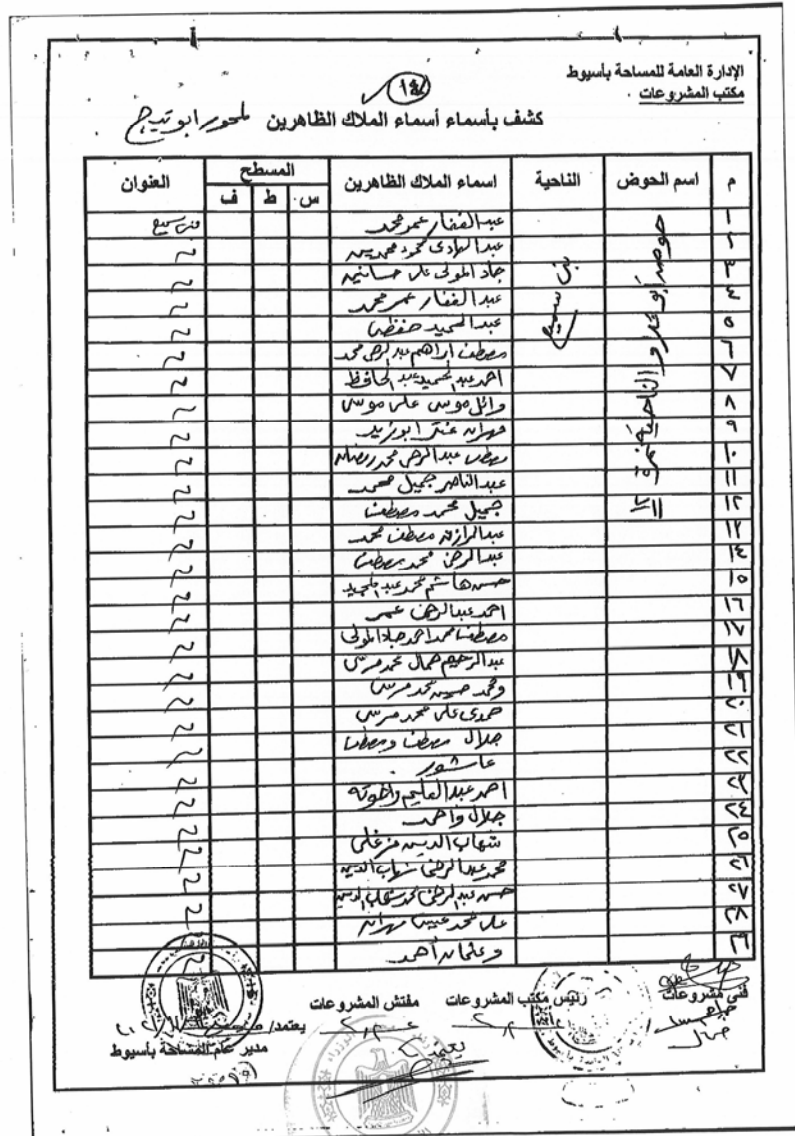 الإدارة العامة للمساحة بأسيوط
مكتب المشروعات
١٤
كشف بأسماء أسماء الملاك الظاهرين لمحور ابو تيج
م اسم الحوض الناحية اسماء الملاك الظاهرين المسطح العنوان
س ط ف
حوض ابو الناحية نمرة
بنى سميع
١ عبد الغفار عمر محمد بنى سميع
٢ عبد الهادى محمود محمد يس
٣ جاد المولى على حسانين
٤ عبد الغفار عمر محمد
٥ عبد الحميد حفظى
٦ مصطفى ابراهيم عبد الرحمن محمد
٧ احمد عبد الحميد عبد الحافظ
٨ وائل موسى على موسى
٩ مهران عنتر ابوزيد
١٠ مصطفى عبد الرحمن محمد رمضان
١١ عبد الناصر جميل محمد
١٢ جميل محمد مصطفى
١٣ عبد الرازق مصطفى محمد
١٤ عبد الرحمن محمد مصطفى
١٥ حسن هاشم محمد عبد المجيد
١٦ احمد عبد الرحمن عمر
١٧ مصطفى محمد احمد جاد المولى
١٨ عبد الرحيم جمال محمد مرسى
١٩ ومحمد حسين محمد مرسى
٢٠ حمدى على محمد مرسى
٢١ جلال مصطفى ومصطفى
٢٢ عاشور
٢٣ احمد عبد العليم واخوته
٢٤ جلال واحمد
٢٥ شهاب الدين مرغلى
٢٦ محمد عبد الرحمن شهاب الدين
٢٧ حسن عبد الرحمن محمد شهاب الدين
٢٨ على محمد مهران
٢٩ وعثمان أحمد
فنى مشروعات رئيس مكتب المشروعات مفتش المشروعات يعتمد/
جمال
مدير عام المساحة بأسيوط
يعتمد